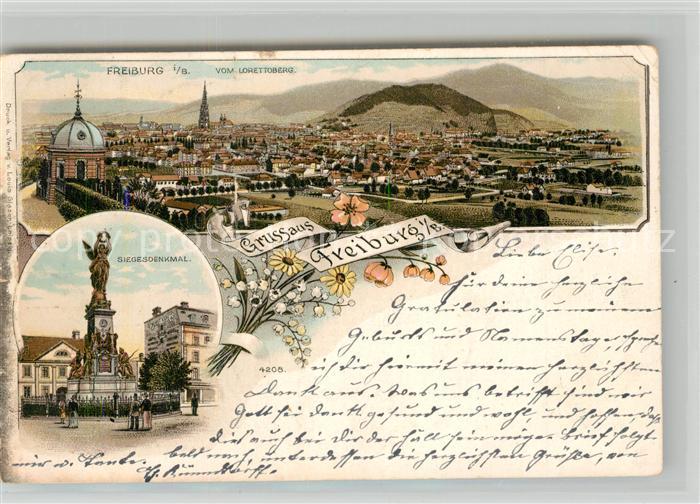 FREIBURG i/B. VOM LORETTOBERG.
Druck u. Verlag v. Louis
Gruss aus
Freiburg i/B.
SIEGESDENKMAL.
4208.
Liebe Elise.
Für Deine herzliche
Gratulation zu meinem
Geburts und Namenstage spreche
ich Dir hiermit meinen herzlichsten
Dank aus. Was uns betrifft sind wir
Gott sei dank gesund und wohl und hoffen daß
dies auch bei Dir der Fall sein möge. Brief folgt
bald nach, unterdessen die herzlichsten Grüße, von
mir u. Tante.